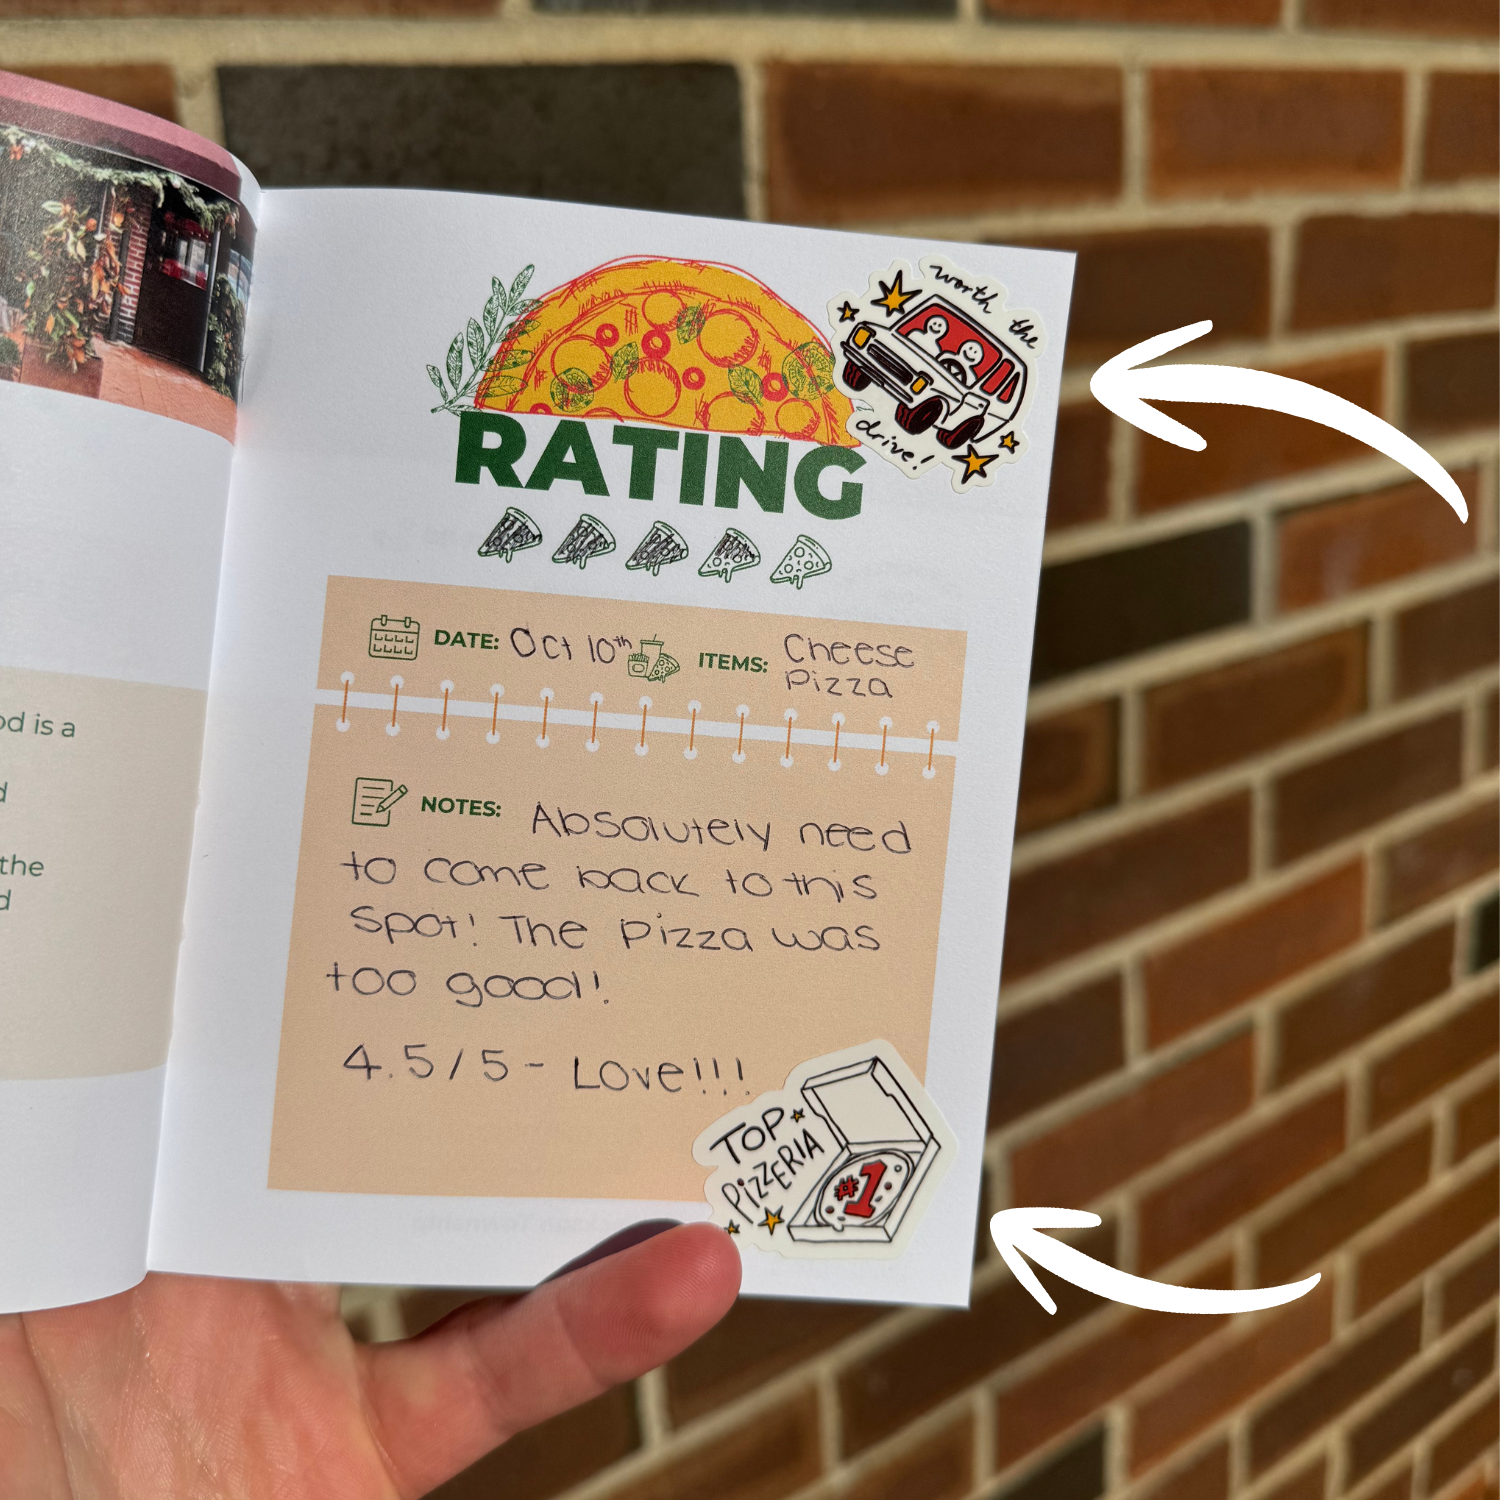 worth the
drive!
RATING
DATE: Oct 10th
ITEMS: Cheese
Pizza
NOTES: Absolutely need
to come back to this
spot! The pizza was
too good!
4.5/5 - Love!!!
TOP
PIZZERIA
#1
od is a
d
the
d